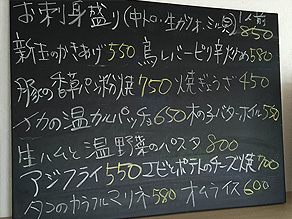 お刺身盛り(中トロ・生カツオ・ミル貝)1人前850
新玉のかきあげ550 鳥レバーピリ辛炒め580
豚の香草パン粉焼750 焼ぎょうざ450
イカの温カルパッチョ650 木の子バターホイル550
生ハムと温野菜のパスタ800
アジフライ550 エビとポテトのチーズ焼700
タコのカラフルマリネ580 オムライス600